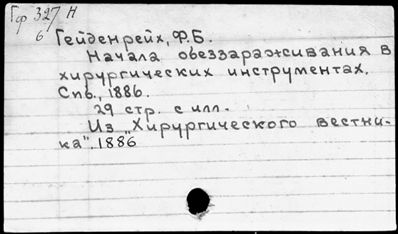 Гф 327 Н
6
Гейденрейх, Ф.Б.
Начала обеззараживания в
хирургических инструментах.
Спб., 1886.
29 стр. с илл.
Из „Хирургического вестни-
ка". 1886